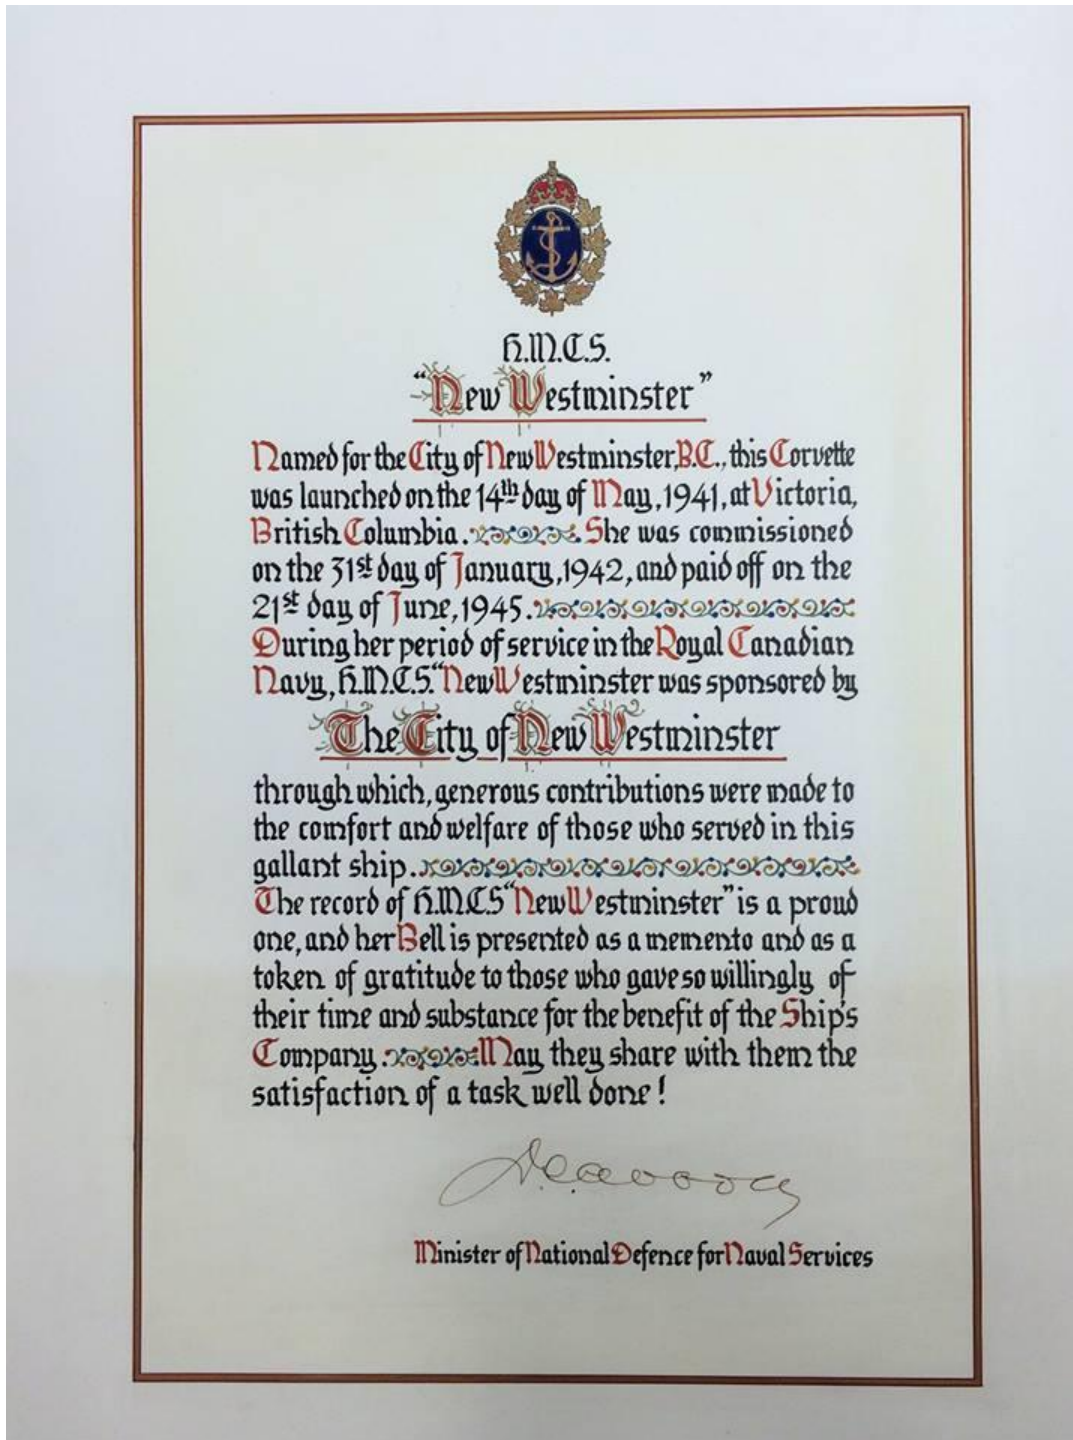 H.M.C.S.
“New Westminster”
Named for the City of New Westminster, B.C., this Corvette
was launched on the 14th day of May, 1941, at Victoria,
British Columbia. She was commissioned
on the 31st day of January, 1942, and paid off on the
21st day of June, 1945.
During her period of service in the Royal Canadian
Navy, H.M.C.S. “New Westminster was sponsored by
The City of New Westminster
through which, generous contributions were made to
the comfort and welfare of those who served in this
gallant ship.
The record of H.M.C.S “New Westminster” is a proud
one, and her Bell is presented as a memento and as a
token of gratitude to those who gave so willingly of
their time and substance for the benefit of the Ship's
Company. May they share with them the
satisfaction of a task well done!
Minister of National Defence for Naval Services